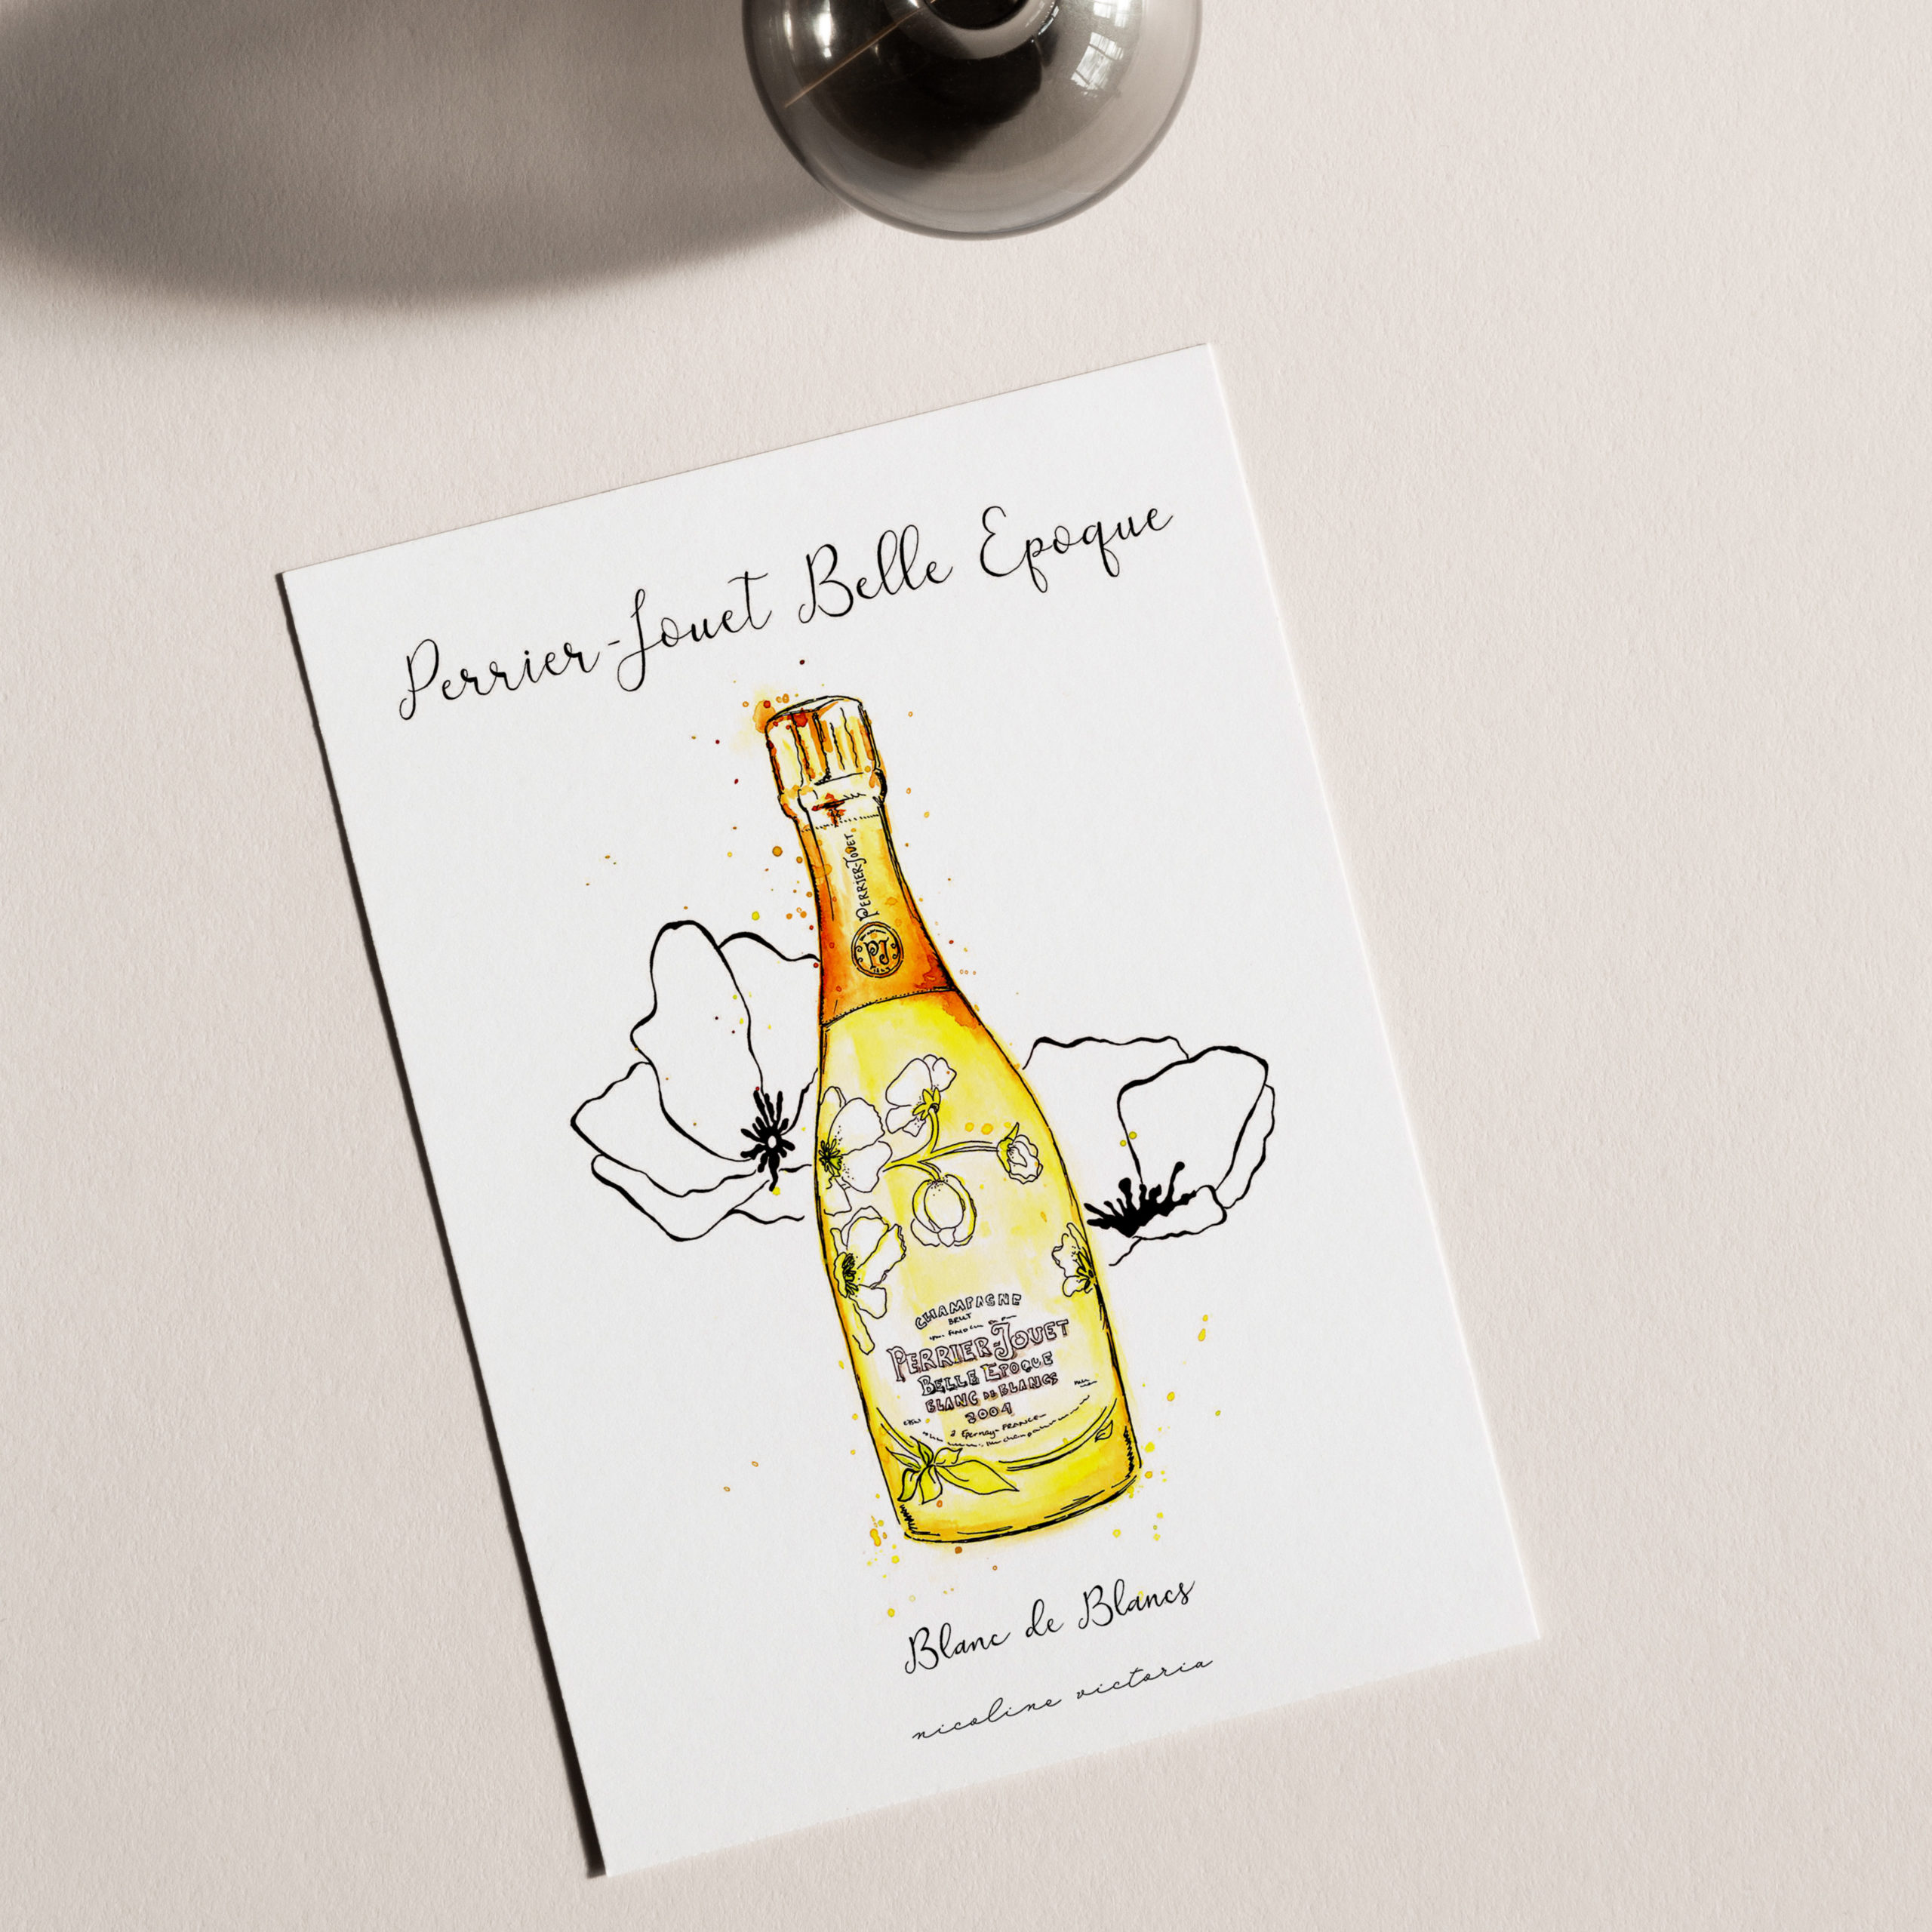 Perrier-Jouet Belle Epoque
PERRIER-JOUET
PJ
CHAMPAGNE
BRUT
PERRIER-JOUET
BELLE EPOQUE
BLANC DE BLANCS
2004
à Epernay-FRANCE
Blanc de Blancs
nicoline victoria